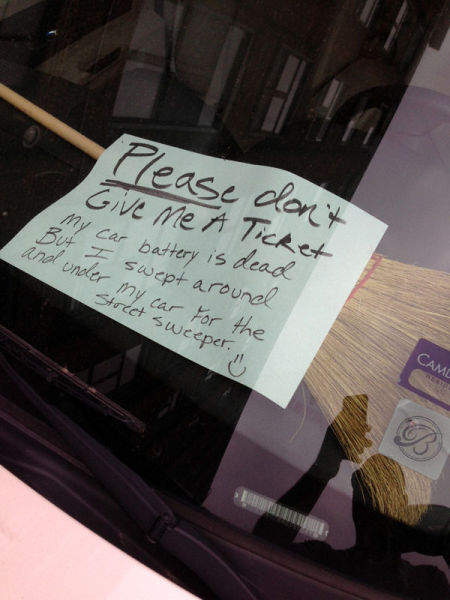 Please don't
Give Me A Ticket
My car battery is dead
But I swept around
and under my car for the
Street sweeper. :)
CAM